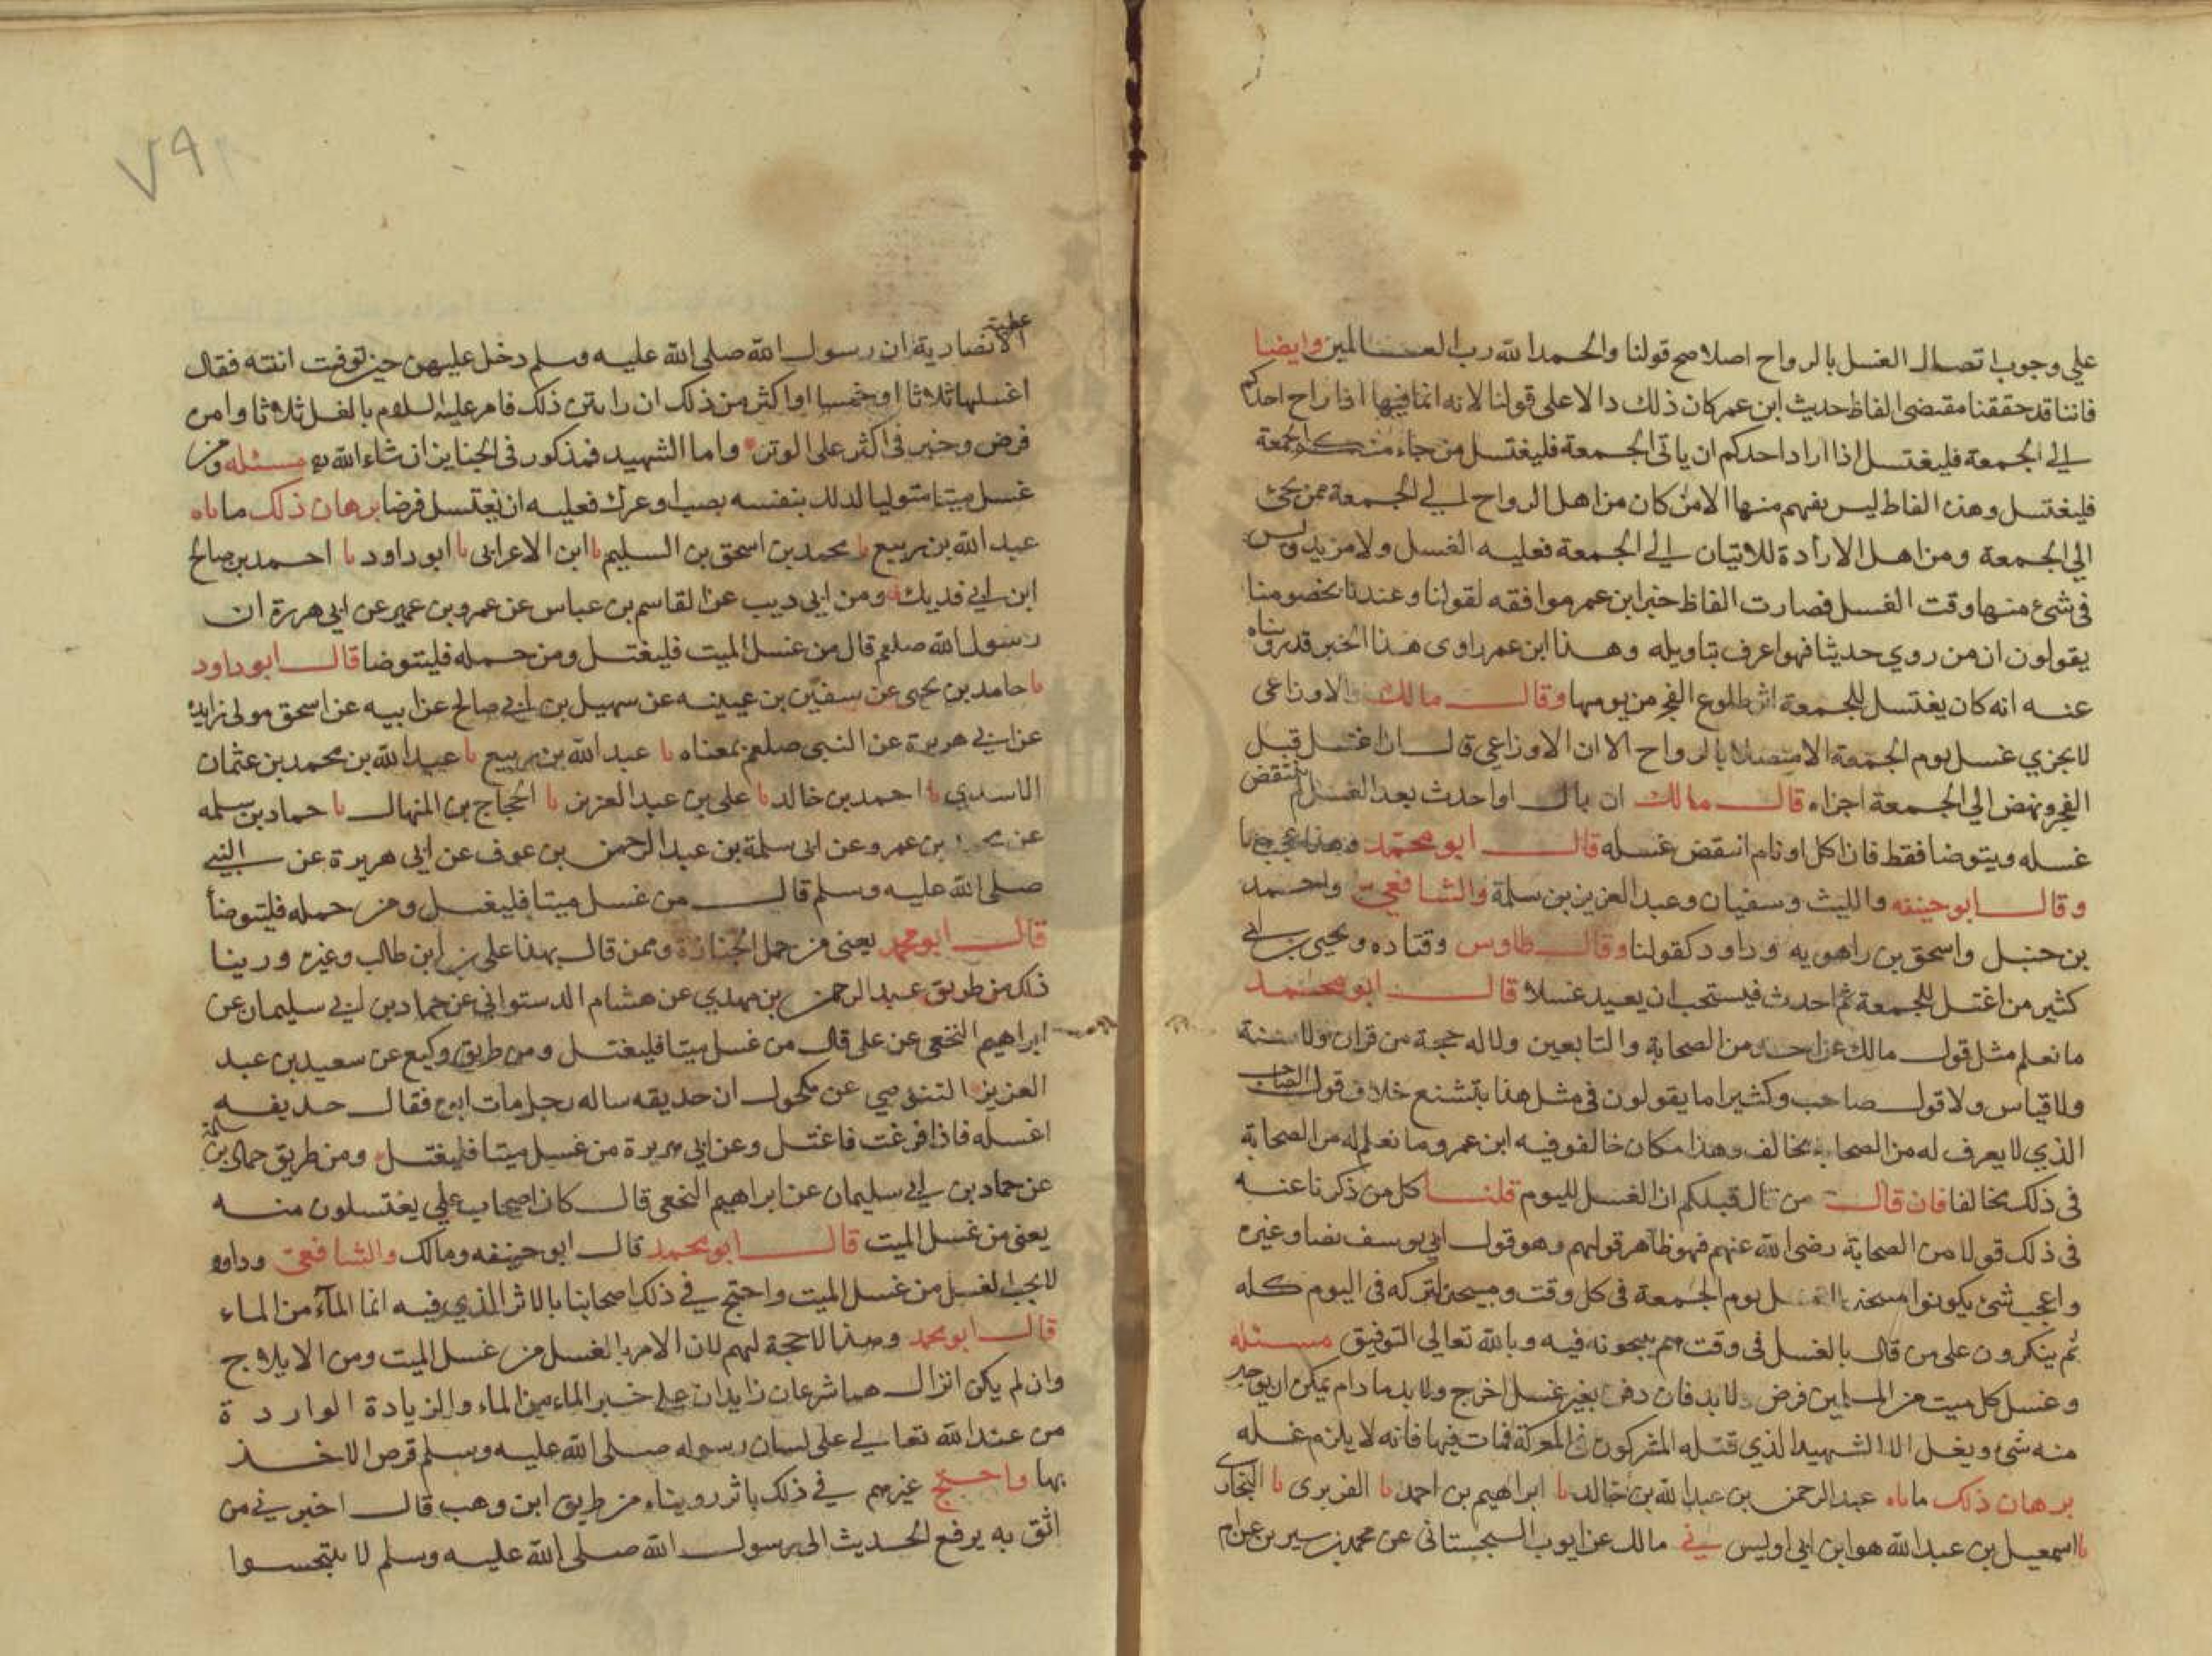 علي وجوب اتصال الغسل بالرواح اصلا صح قولنا والحمد الله رب العالمين وايضا
فاننا قد حققنا مقتضى الفاظ حديث ابن عمر كان ذلك دالا على قولنا لانه انما فيها اذا راح احدكم
الي الجمعة فليغتسل اذا اراد احدكم ان ياتى الجمعة فليغتسل من جاء منكم الجمعة
فليغتسل وهذه الفاظ ليس يفهم منها الا من كان من اهل الرواح الي الجمعة ممن يجئ
الي الجمعة ومن اهل الارادة للاتيان الي الجمعة فعليه الغسل ولا مزيد وليس
فى شىء منها وقت الغسل فصارت الفاظ خبر ابن عمر موافقه لقولنا وعندنا بخصومنا
يقولون ان من روي حديثا فهو اعرف بتاويله وهذا ابن عمر راوى هذا الخبر قد روينا
عنه انه كان يغتسل للجمعة اثر طلوع الفجر من يومها وقال مالك والاوزاعى
لا يجزي غسل يوم الجمعة الا متصلا بالرواح الا ان الاوزاعي قال ان اغتسل قبل
الفجر ونهض الي الجمعة اجزاه قال مالك ان بال او احدث بعد الغسل لم ينتقض
غسله ويتوضا فقط فان اكل او نام انتقض غسله قال ابو محمد وهذا عجب
وقال ابو حنيفه والليث وسفيان وعبد العزيز بن سلمة والشافعي واحمد
بن حنبل واسحق بن راهويه وداود كقولنا وقال طاوس وقتاده ويحيى بن ابي
كثير من اغتسل للجمعة ثم احدث فيستحب ان يعيد غسلا قال ابو محمد
ما نعلم مثل قول مالك عن احد من الصحابة والتابعين ولا له حجة من قران ولا سنة
ولا قياس ولا قول صاحب وكثيرا ما يقولون فى مثل هذا بتشنع خلاف قول الصاحب
الذي لا يعرف له من الصحابة مخالف وهذا مكان خالفو فيه ابن عمر وما نعلم له من الصحابة
فى ذلك مخالفا فان قالت من قال قبلكم ان الغسل لليوم قلنا كل من ذكرنا عنه
فى ذلك قولا من الصحابة رضى الله عنهم فهو ظاهر قولهم وهو قول ابي يوسف نصا وغيره
واعجب شئ يكونوا مبيحين الغسل يوم الجمعة فى كل وقت ومبيحين لتركه فى اليوم كله
ثم ينكرون على من قال بالغسل فى وقت هم يبيحونه فيه وبالله تعالي التوفيق مسئله
وغسل كل ميت من المسلمين فرض ولا بد فان دفن بغير غسل اخرج ولا بد ما دام يمكن ان يوجد
منه شئ ويغسل الا الشهيد الذي قتله المشركون في المعركة فمات فيها فانه لا يلزم غسله
برهان ذلك ماناه عبد الرحمن بن عبد الله بن خالد نا ابراهيم بن احمد نا الفربرى نا البخاري
نا اسمعيل بن عبد الله هو ابن ابي اويس ني مالك عن ايوب السجستانى عن محمد بن سيرين عن ام
عطية
الانصارية ان رسول الله صلى الله عليه وسلم دخل عليهن حين توفيت ابنته فقال
اغسلها ثلاثا او خمسا او اكثر من ذلك ان رايتن ذلك فامر عليه السلام بالغسل ثلاثا وامره
فرض وخير فى اكثر على الوتر واما الشهيد فمذكور فى الجنايز ان شاء الله مسئله ومن
غسل ميتا متوليا لذلك بنفسه بصب او عرك فعليه ان يغتسل فرضا برهان ذلك ماناه
عبد الله بن ربيع نا محمد بن اسحق بن السليم نا ابن الاعرابى نا ابو داود نا احمد بن صالح
ابن ابي فديك ومن ابي ديب عن القاسم بن عباس عن عمرو بن عمير عن ابي هريرة ان
رسول الله صلعم قال من غسل الميت فليغتسل ومن حمله فليتوضا قال ابو داود
نا حامد بن يحيى عن سفين بن عيينه عن سهيل بن ابي صالح عن ابيه عن اسحق مولى زايده
عن ابي هريرة عن النبى صلعم بمعناه نا عبد الله بن ربيع نا عبد الله بن محمد بن عثمان
الاسدي نا احمد بن خالد نا على بن عبد العزيز نا الحجاج بن المنهال نا حماد بن سلمه
عن محمد بن عمرو عن ابى سلمة بن عبد الرحمن بن عوف عن ابي هريرة عن النبي
صلى الله عليه وسلم قال من غسل ميتا فليغتسل ومن حمله فليتوضأ
قال ابو محمد يعنى من حمل الجنازة وممن قال بهذا على بن ابن طالب وغيره وروينا
ذلك من طريق عبد الرحمن بن مهدي عن هشام الدستواني عن حماد بن ابي سليمان عن
ابراهيم النخعى عن على قال من غسل ميتا فليغتسل ومن طريق وكيع عن سعيد بن عبد
العزيز التنوخي عن مكحول ان حذيفه ساله رجل مات ابوه فقال حذيفه
اغسله فاذا فرغت فاغتسل وعن ابي هريرة من غسل ميتا فليغتسل ومن طريق حماد بن سلمة
عن حماد بن ابي سليمان عن ابراهيم النخعى قال كان اصحاب علي يغتسلون منه
يعنى من غسل الميت قال ابو محمد قال ابو حنيفه ومالك والشافعى وداود
لا يجب الغسل من غسل الميت واحتج في ذلك اصحابنا بالاثر الذي فيه انما المآء من الماء
قال ابو محمد وهذا لا حجة لهم لان الامر بالغسل من غسل الميت ومن الايلاج
وان لم يكن انزال هما شرعان زايدان علي خبر الماء من الماء والزيادة الواردة
من عند الله تعالي على لسان رسوله صلى الله عليه وسلم فرض الاخذ
بها واحتج غيرهم في ذلك باثر رويناه من طريق ابن وهب قال اخبرني من
اثق به يرفع الحديث الى رسول الله صلى الله عليه وسلم لا تنجسوا
٧٩